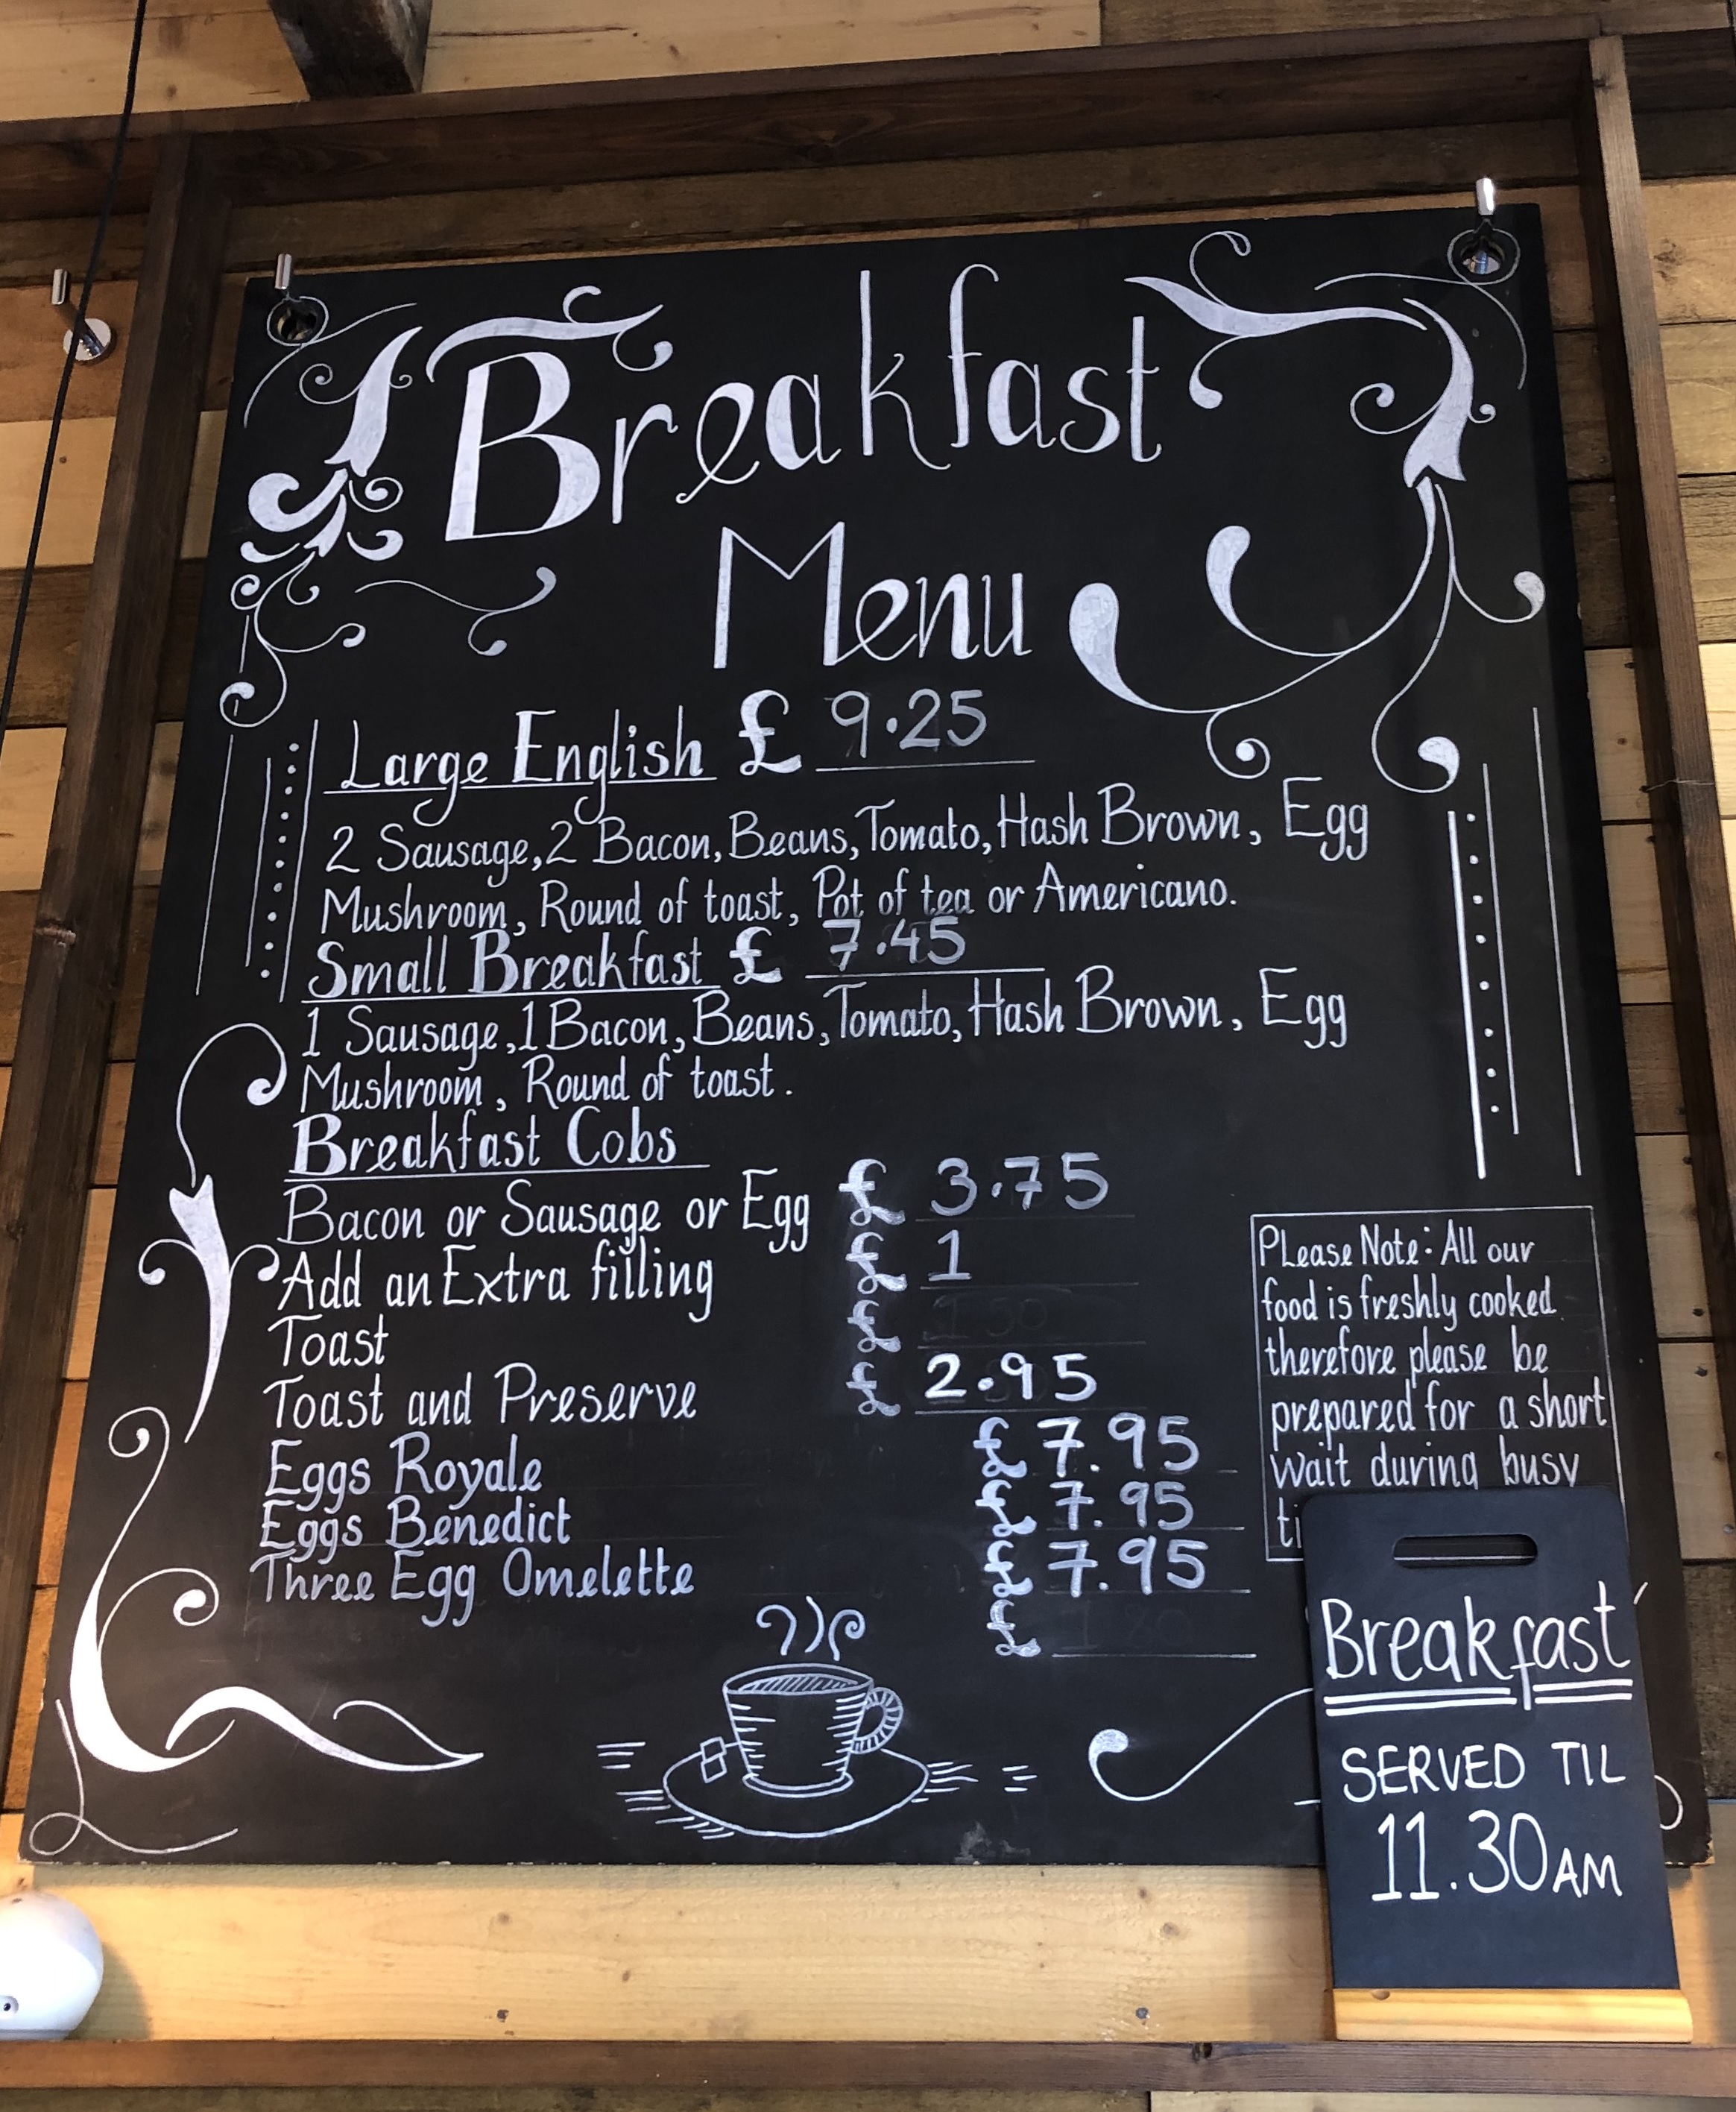 Breakfast
Menu
Large English £ 9.25
2 Sausage, 2 Bacon, Beans, Tomato, Hash Brown, Egg
Mushroom, Round of toast, Pot of tea or Americano.
Small Breakfast £ 7.45
1 Sausage, 1 Bacon, Beans, Tomato, Hash Brown, Egg
Mushroom, Round of toast.
Breakfast Cobs
Bacon or Sausage or Egg £ 3.75
Add an Extra filling £ 1
Toast £
Toast and Preserve £ 2.95
Eggs Royale £ 7.95
Eggs Benedict £ 7.95
Three Egg Omelette £ 7.95
£
PLease Note: All our
food is freshly cooked
therefore please be
prepared for a short
wait during busy
Breakfast
SERVED TIL
11.30AM